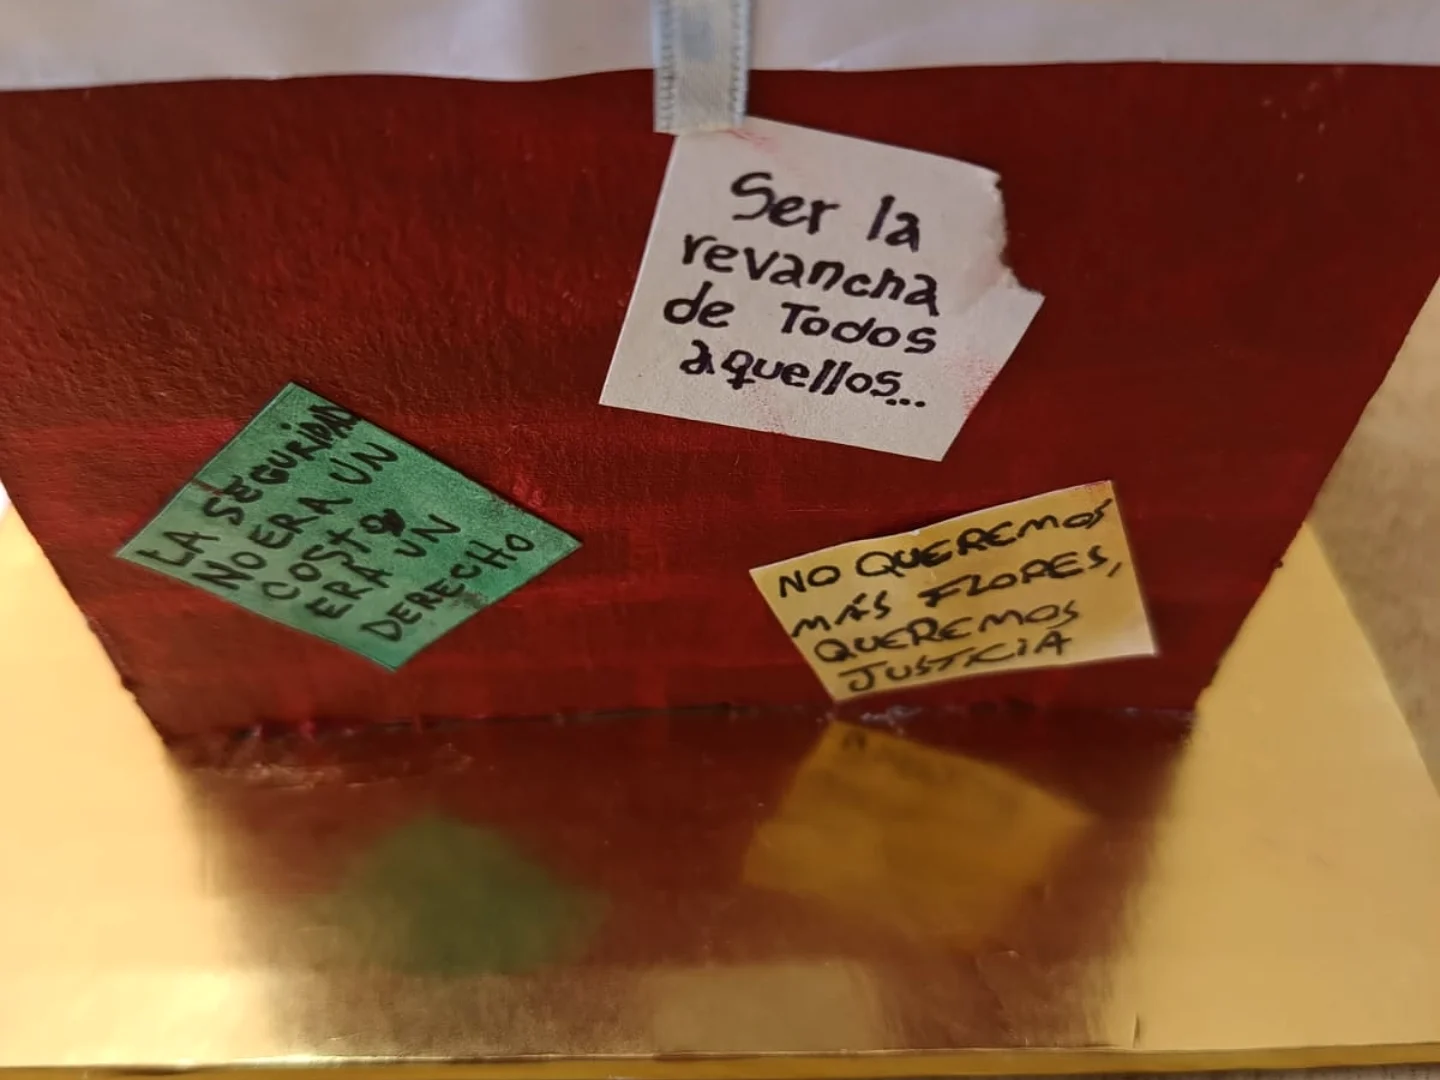 Ser la
revancha
de Todos
aquellos...
LA SEGURIDAD
NO ERA UN
COSTO
ERA UN
DERECHO
NO QUEREMOS
MÁS FLORES,
QUEREMOS
JUSTICIA